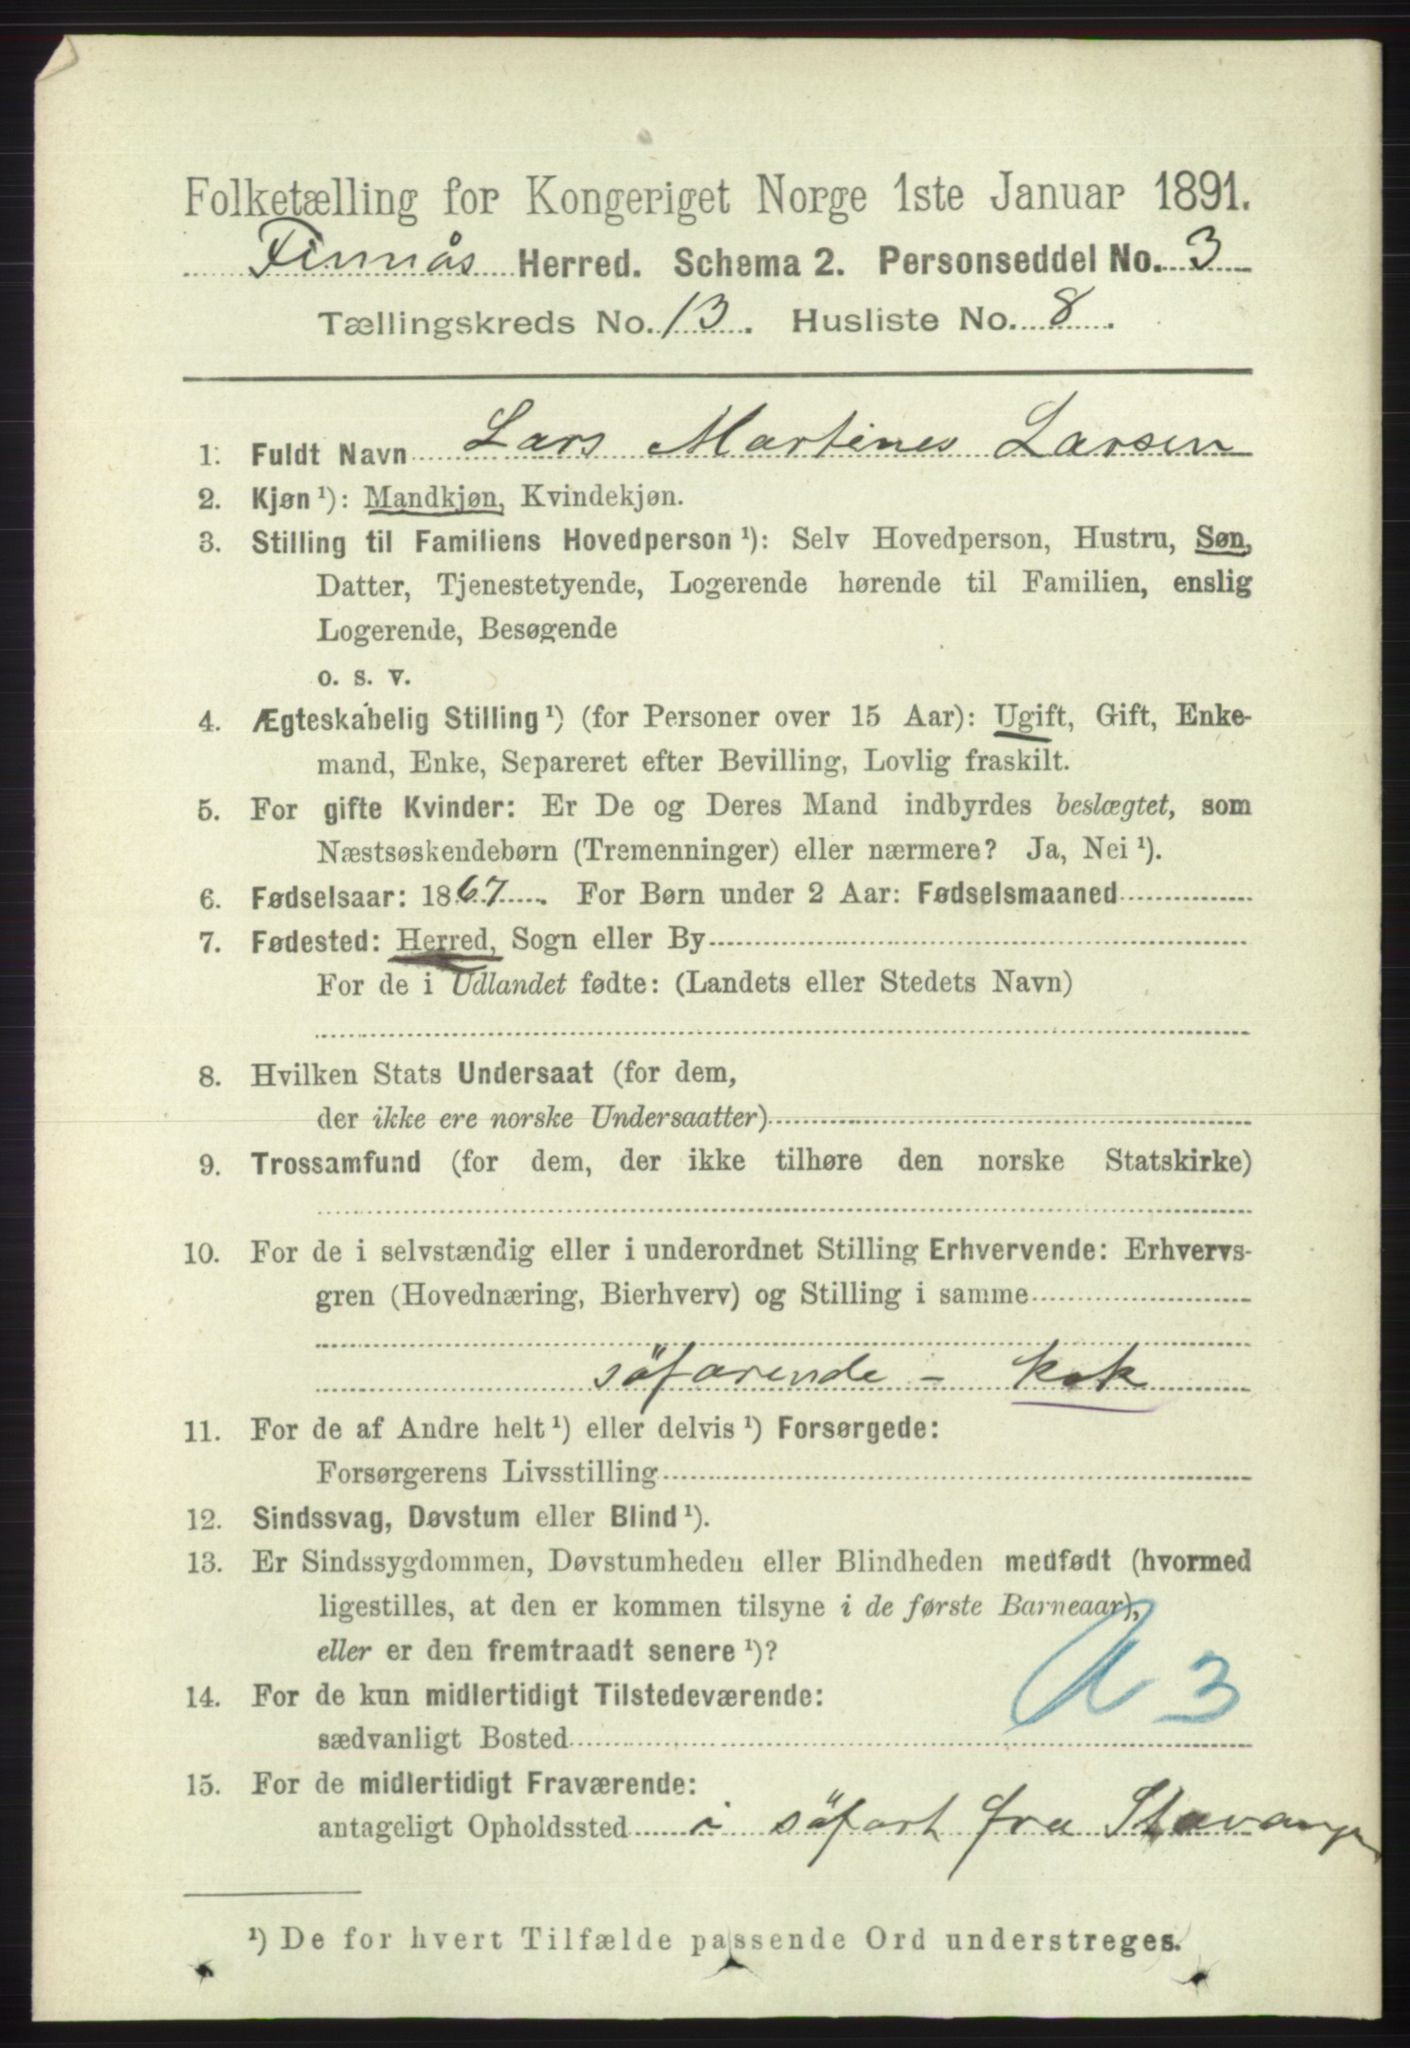 Folketælling for Kongeriget Norge 1ste Januar 1891.
Finnås Herred. Schema 2. Personseddel No. 3
Tællingskreds No. 13. Husliste No. 8.
1. Fuldt Navn Lars Martines Larsen
2. Kjøn ¹): Mandkjøn, Kvindekjøn.
3. Stilling til Familiens Hovedperson ¹): Selv Hovedperson, Hustru, Søn,
Datter, Tjenestetyende, Logerende hørende til Familien, enslig
Logerende, Besøgende
o. s. v.
4. Ægteskabelig Stilling ¹) (for Personer over 15 Aar): Ugift, Gift, Enke-
mand, Enke, Separeret efter Bevilling, Lovlig fraskilt.
5. For gifte Kvinder: Er De og Deres Mand indbyrdes beslægtet, som
Næstsøskendebørn (Tremenninger) eller nærmere? Ja, Nei ¹).
6. Fødselsaar: 1867. For Børn under 2 Aar: Fødselsmaaned
7. Fødested: Herred, Sogn eller By
For de i Udlandet fødte: (Landets eller Stedets Navn)
8. Hvilken Stats Undersaat (for dem,
der ikke ere norske Undersaatter)
9. Trossamfund (for dem, der ikke tilhøre den norske Statskirke)
10. For de i selvstændig eller i underordnet Stilling Erhvervende: Erhvervs-
gren (Hovednæring, Bierhverv) og Stilling i samme
söfarende - kok
11. For de af Andre helt ¹) eller delvis ¹) Forsørgede:
Forsørgerens Livsstilling
12. Sindssvag, Døvstum eller Blind ¹).
13. Er Sindssygdommen, Døvstumheden eller Blindheden medfødt (hvormed
ligestilles, at den er kommen tilsyne i de første Barneaar),
eller er den fremtraadt senere ¹)?
14. For de kun midlertidigt Tilstedeværende:
sædvanligt Bosted
3
15. For de midlertidigt Fraværende:
antageligt Opholdssted i söfart fra Stavanger
¹) De for hvert Tilfælde passende Ord understreges.